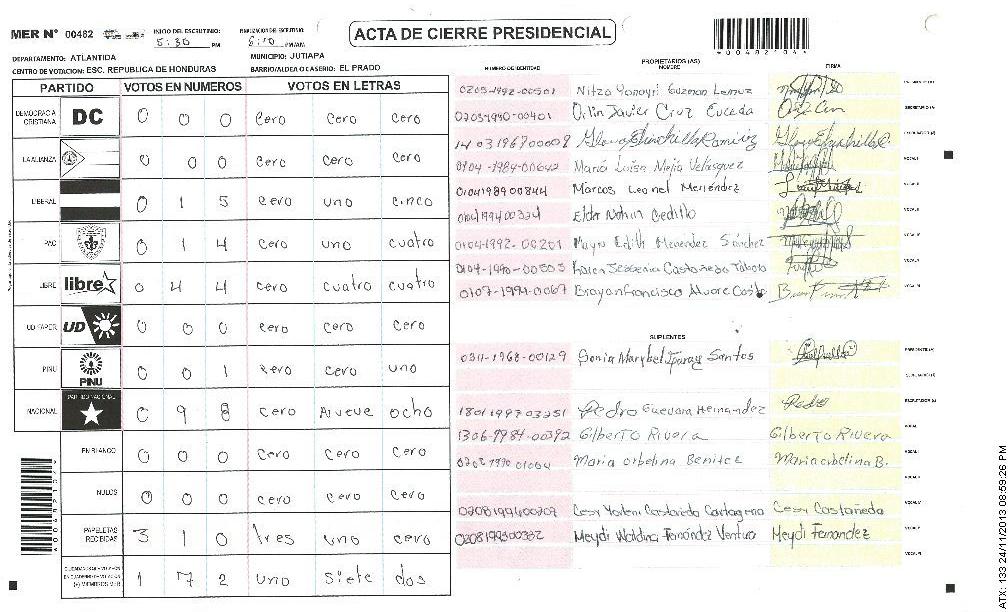 MER N° 00482
INICIO DEL ESCRUTINIO: 5:30 PM
FINALIZACION DE ESCRUTINIO: 6:10 PM/AM
ACTA DE CIERRE PRESIDENCIAL
*004821044*
DEPARTAMENTO: ATLANTIDA
MUNICIPIO: JUTIAPA
CENTRO DE VOTACION: ESC. REPUBLICA DE HONDURAS
BARRIO/ALDEA O CASERIO: EL PRADO
PARTIDO VOTOS EN NUMEROS VOTOS EN LETRAS
DEMOCRACIA CRISTIANA DC 0 0 0 cero cero cero
LA ALIANZA 0 0 0 cero cero cero
LIBERAL 0 1 5 cero uno cinco
PAC 0 1 4 cero uno cuatro
LIBRE libre 0 4 4 cero cuatro cuatro
UD FAPER UD 0 0 0 cero cero cero
PINU PINU 0 0 1 cero cero uno
NACIONAL PARTIDO NACIONAL 0 9 8 cero Nueve ocho
EN BLANCO 0 0 0 cero cero cero
NULOS 0 0 0 cero cero cero
PAPELETAS RECIBIDAS 3 1 0 tres uno cero
(+) MIEMBROS MER 1 7 2 uno siete dos
PROPIETARIOS (AS)
NUMERO DE IDENTIDAD NOMBRE FIRMA
0205-1992-00501 Guzman
0703-1990-00401 Javier Cruz Euceda
SECRETARIO (A)
0104-1984-00642 Maria Luisa Mejia Velasquez VOCAL I
0104198900844 Marcos Leonel Menendez
0104199400334 Elder Nahun Cedillo
0104-1992-00201 Mayra Edith Menendez Sánchez
0104-1990-00505 Karen Castañeda
0107-1991-0067 Francisco
SUPLENTES
0311-1968-00129 Sonia Marybel Santos
PRESIDENTE (A)
SECRETARIO (A)
1801199703251 Pedro Guevara Hernandez Pedro ESCRUTADOR (A)
1306-9984-00392 Gilberto Rivera Gilberto Rivera VOCAL
0202 1990 01004 Maria orbelina Benitez Maria orbelina B.
0208199400209 Cesy Castañeda Cartagena Cesy Castañeda
0208199300332 Meydi Waldina Fernández Ventura Meydi Fernandez
ATX: 133 24/11/2013 08:59:26 PM